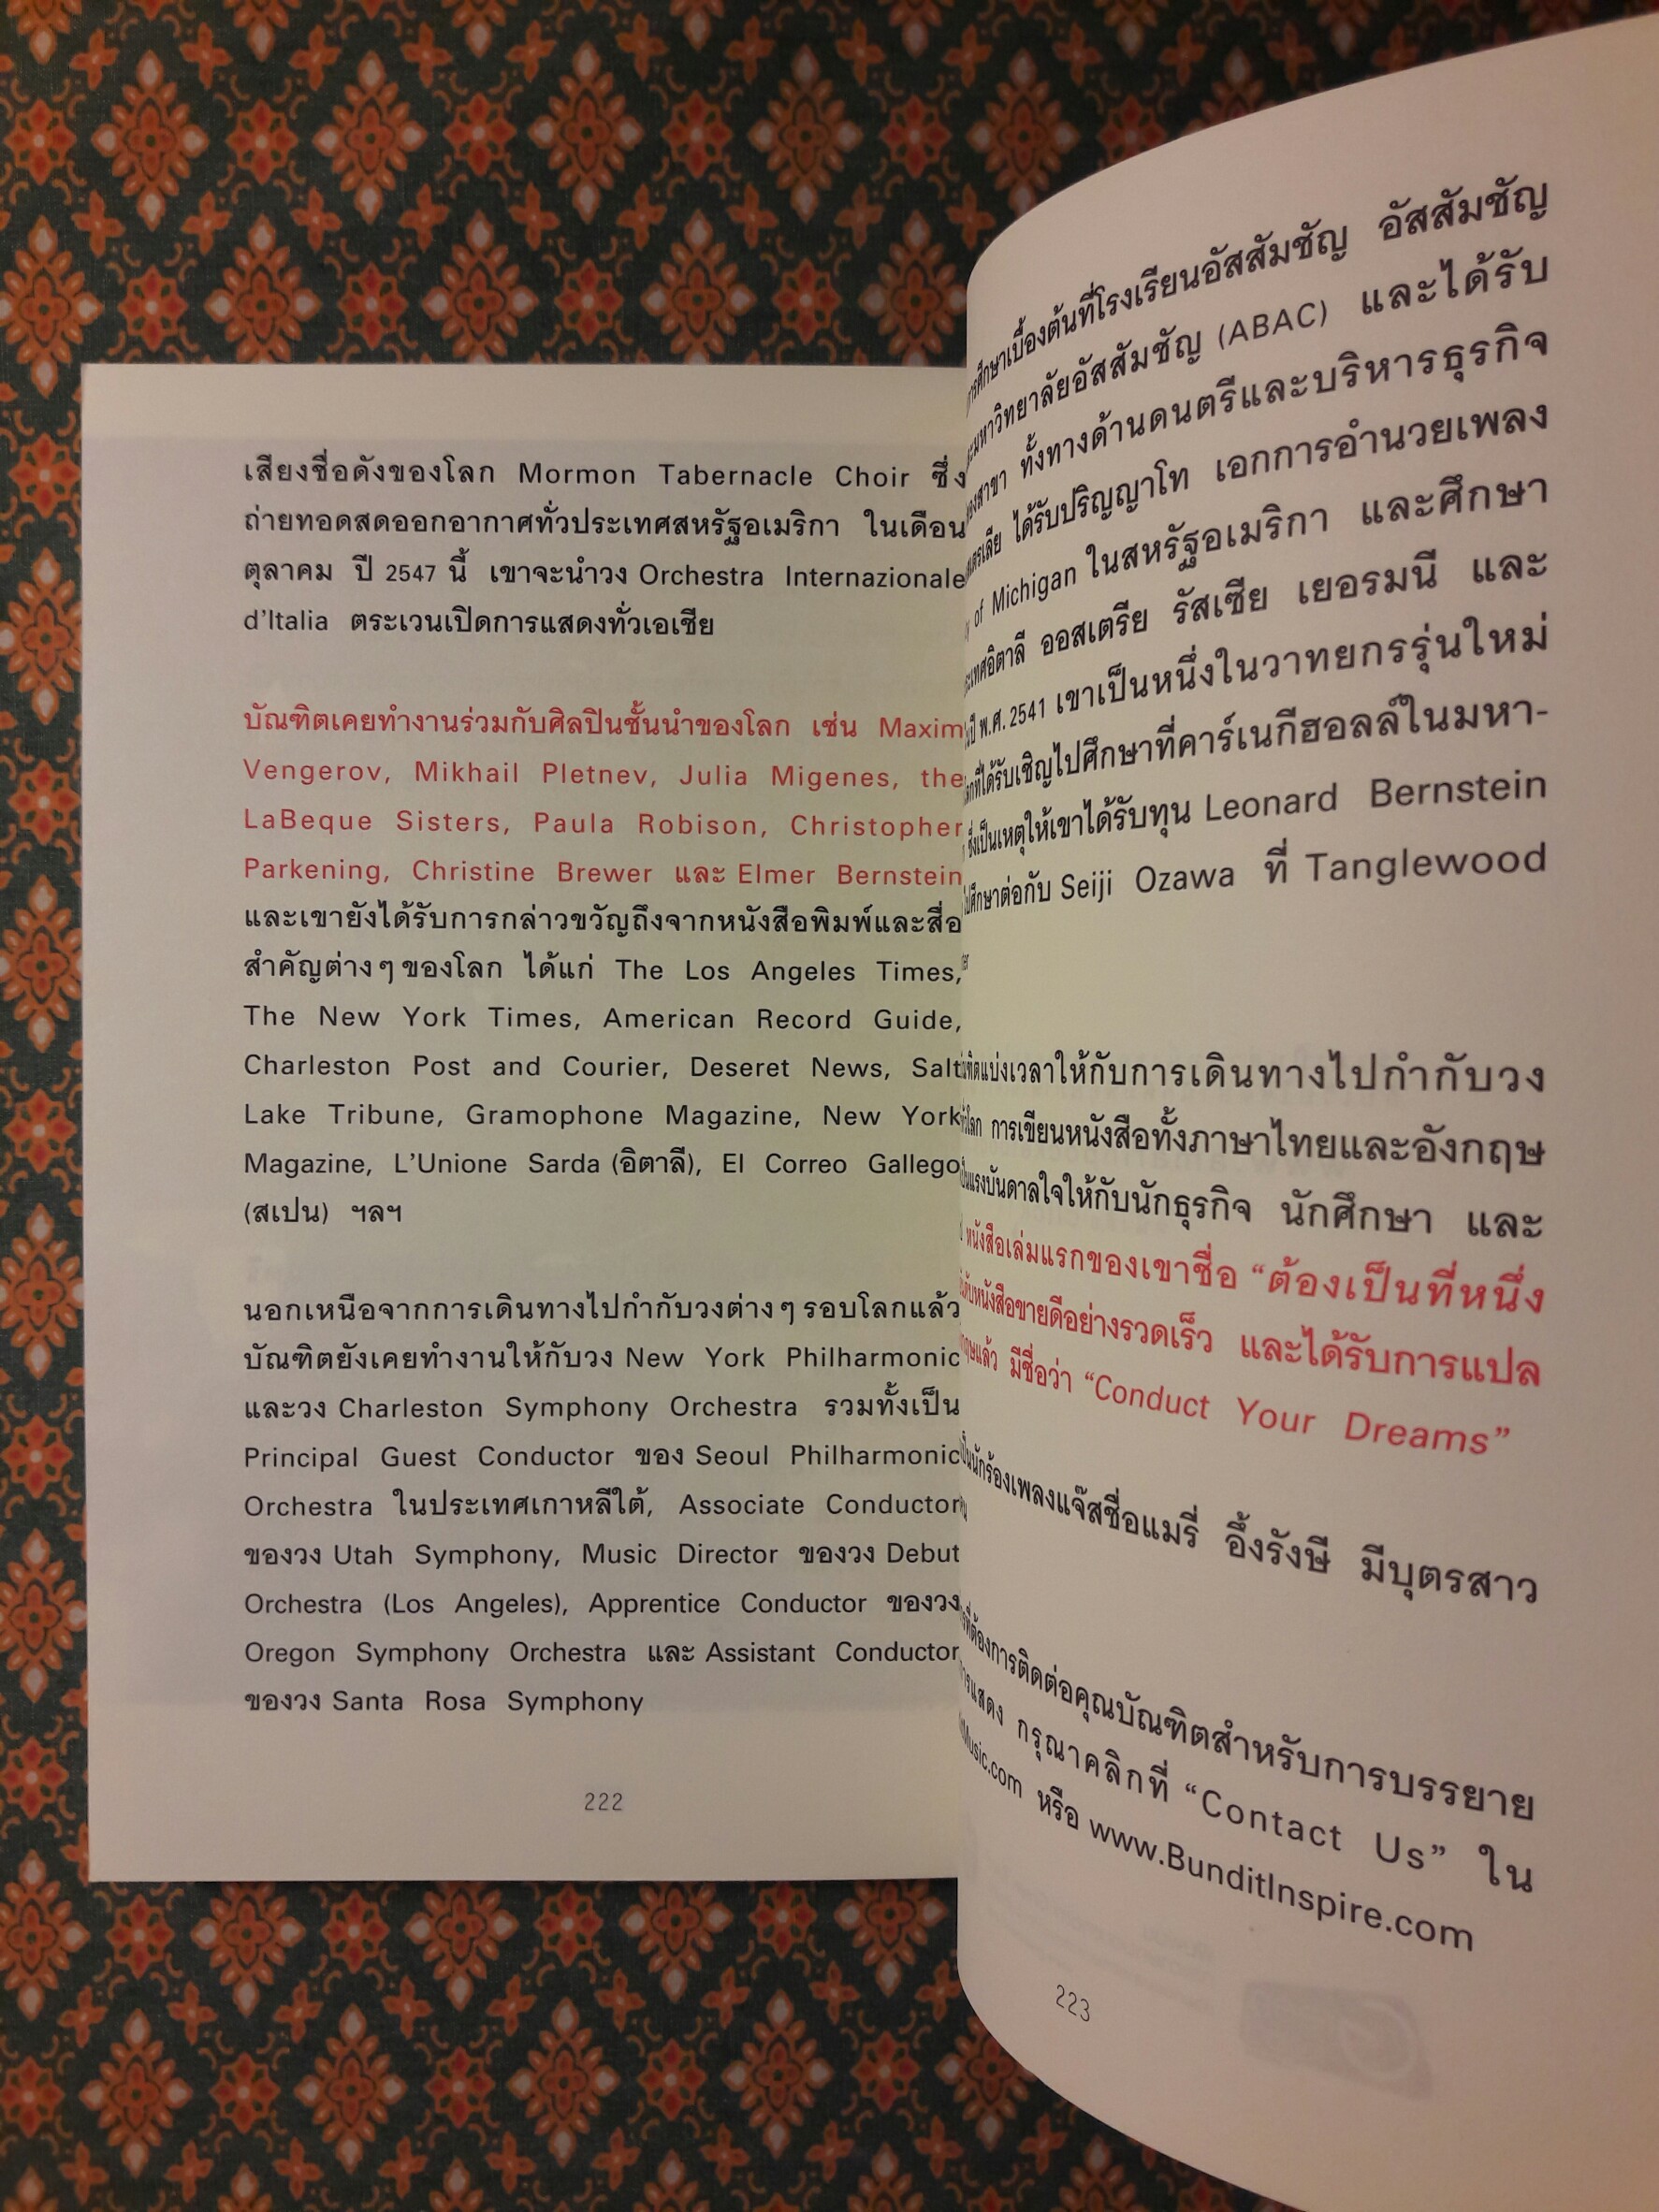 เสียงชื่อดังของโลก Mormon Tabernacle Choir ซึ่ง
ถ่ายทอดสดออกอากาศทั่วประเทศสหรัฐอเมริกา ในเดือน
ตุลาคม ปี 2547 นี้ เขาจะนำวง Orchestra Internazionale
d'Italia ตระเวนเปิดการแสดงทั่วเอเชีย
บัณฑิตเคยทำงานร่วมกับศิลปินชั้นนำของโลก เช่น Maxim
Vengerov, Mikhail Pletnev, Julia Migenes, the
LaBeque Sisters, Paula Robison, Christopher
Parkening, Christine Brewer และ Elmer Bernstein
และเขายังได้รับการกล่าวขวัญถึงจากหนังสือพิมพ์และสื่อ
สำคัญต่างๆ ของโลก ได้แก่ The Los Angeles Times,
The New York Times, American Record Guide,
Charleston Post and Courier, Deseret News, Salt
Lake Tribune, Gramophone Magazine, New York
Magazine, L'Unione Sarda (อิตาลี), El Correo Gallego
(สเปน) ฯลฯ
นอกเหนือจากการเดินทางไปกำกับวงต่างๆ รอบโลกแล้ว
บัณฑิตยังเคยทำงานให้กับวง New York Philharmonic
และวง Charleston Symphony Orchestra รวมทั้งเป็น
Principal Guest Conductor ของ Seoul Philharmonic
Orchestra ในประเทศเกาหลีใต้, Associate Conductor
ของวง Utah Symphony, Music Director ของวง Debut
Orchestra (Los Angeles), Apprentice Conductor ของวง
Oregon Symphony Orchestra และ Assistant Conductor
ของวง Santa Rosa Symphony
222
การศึกษาเบื้องต้นที่โรงเรียนอัสสัมชัญ อัสสัมชัญ
มหาวิทยาลัยอัสสัมชัญ (ABAC) และได้รับ
ทั้งทางด้านดนตรีและบริหารธุรกิจ
ได้รับปริญญาโท เอกการอำนวยเพลง
of Michigan ในสหรัฐอเมริกา และศึกษา
อิตาลี ออสเตรีย รัสเซีย เยอรมนี และ
ปี พ.ศ. 2541 เขาเป็นหนึ่งในวาทยกรรุ่นใหม่
ที่ได้รับเชิญไปศึกษาที่คาร์เนกีฮอลล์ในมหา-
ซึ่งเป็นเหตุให้เขาได้รับทุน Leonard Bernstein
ศึกษาต่อกับ Seiji Ozawa ที่ Tanglewood
แบ่งเวลาให้กับการเดินทางไปกำกับวง
การเขียนหนังสือทั้งภาษาไทยและอังกฤษ
แรงบันดาลใจให้กับนักธุรกิจ นักศึกษา และ
หนังสือเล่มแรกของเขาชื่อ “ต้องเป็นที่หนึ่ง
หนังสือขายดีอย่างรวดเร็ว และได้รับการแปล
แล้ว มีชื่อว่า “Conduct Your Dreams”
เป็นนักร้องเพลงแจ๊สชื่อแมรี่ อึ้งรังษี มีบุตรสาว
ที่ต้องการติดต่อคุณบัณฑิตสำหรับการบรรยาย
การแสดง กรุณาคลิกที่ “Contact Us” ใน
Music.com หรือ www.BunditInspire.com
223